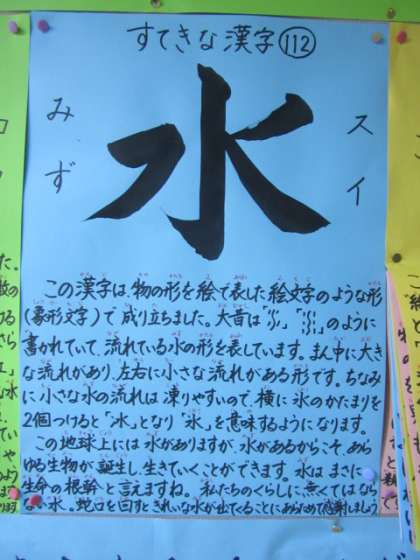 すてきな漢字 112
みず
水
スイ
この漢字は、物の形を絵で表した絵文字のような形
(象形文字)で成り立ちました。大昔は「」「」のように
書かれていて、流れている水の形を表しています。まん中に大き
な流れがあり、左右に小さな流れがある形です。ちなみ
に小さな水の流れは凍りやすいので、横に氷のかたまりを
2個つけると「冰」となり「氷」を意味するようになります。
この地球上には水がありますが、水があるからこそ、あら
ゆる生物が誕生し、生きていくことができます。水はまさに
生命の根幹と言えますね。私たちのくらしに無くてはなら
ない水、蛇口を回すときれいな水が出てくることにあらためて感謝しましょう